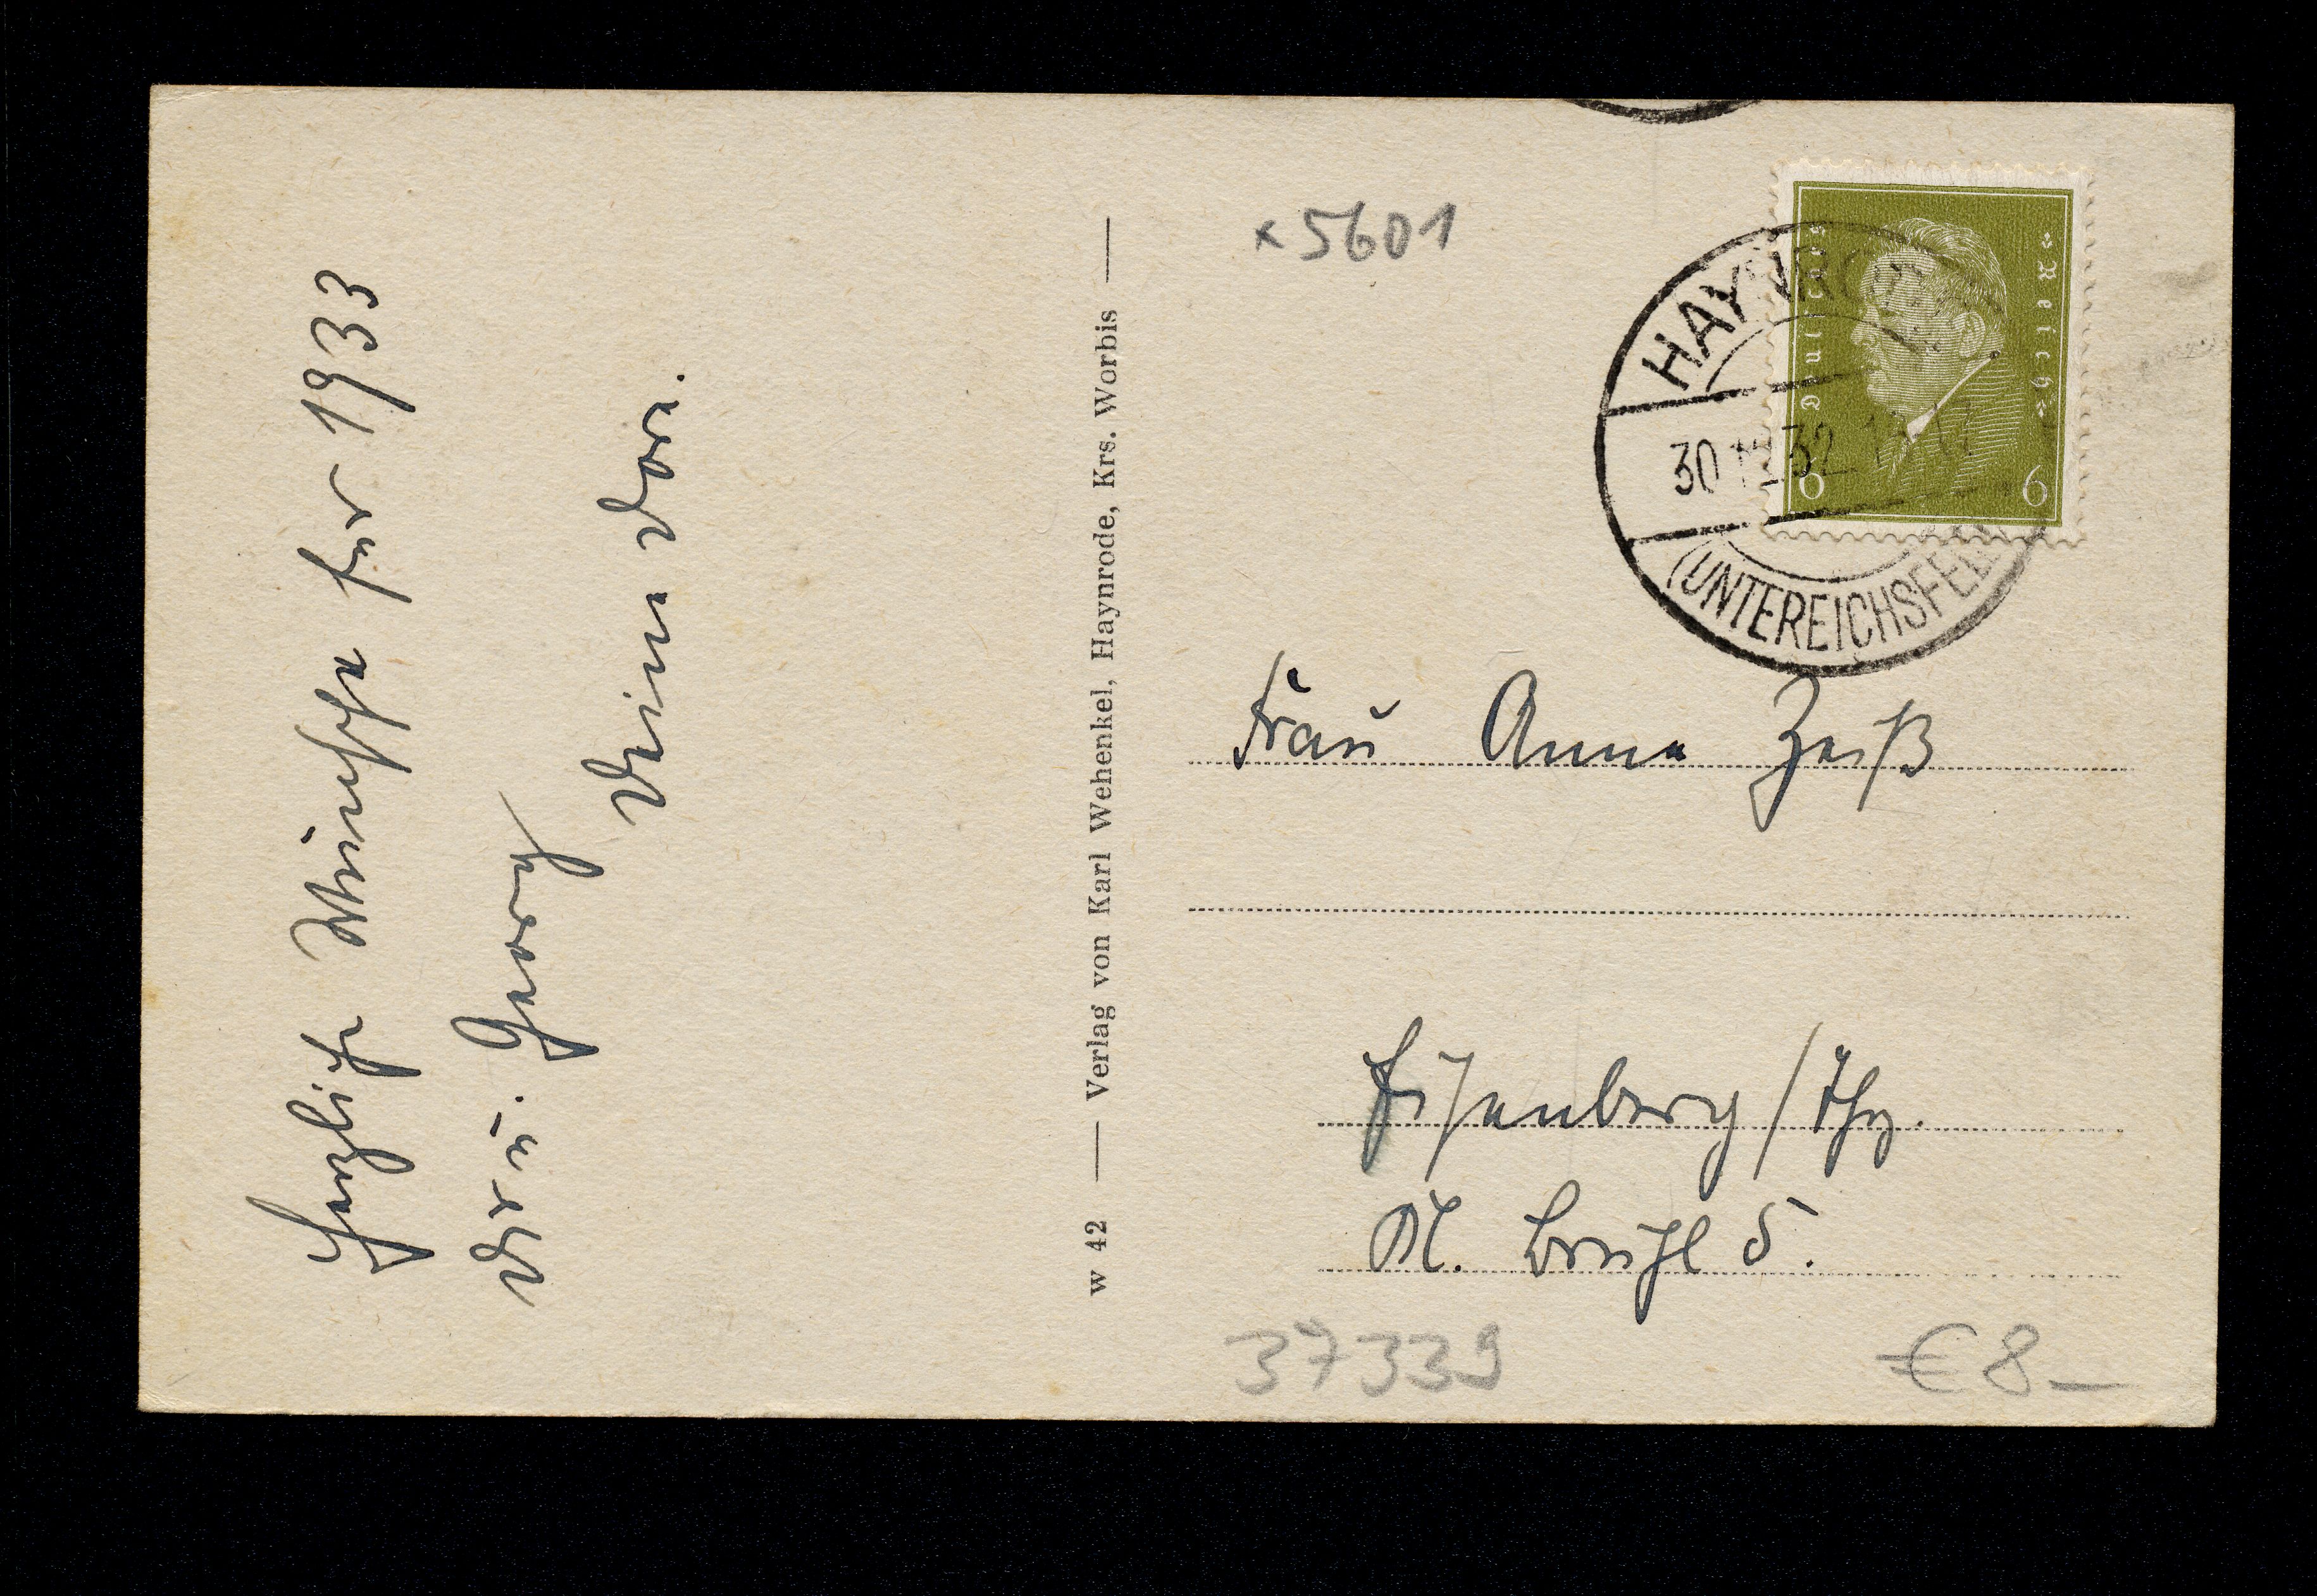 Herzliche Wünsche für 1933
Dir u. Georg
Deine Dori.
w 42 — Verlag von Karl Wehenkel, Haynrode, Krs. Worbis —
× 5601
HAYNRODE
30 32
(UNTEREICHSFELD
Deutsches Reich
6 6
Frau Anna Zeiß
Eisenberg / Thg.
Kl. Brühl 5.
37339
€ 8 —